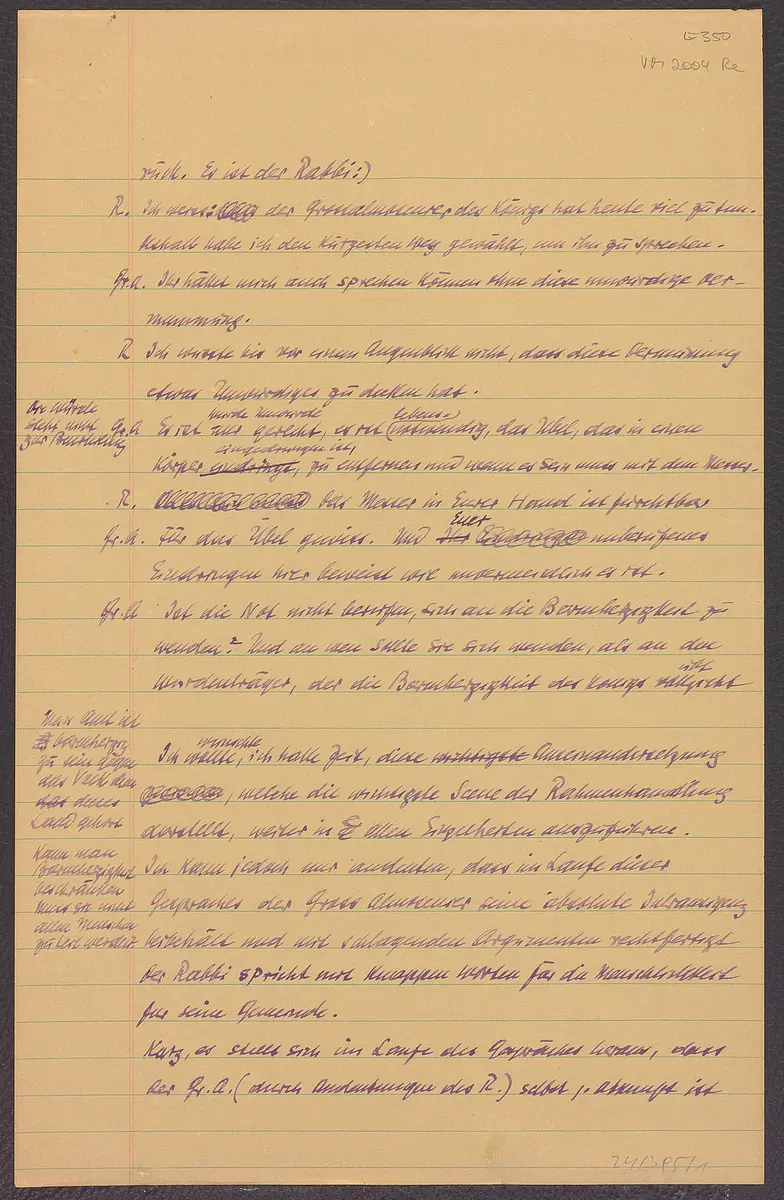 E 350
VM 2004 Re
rück. Es ist der Rabbi:)
R. Ich weiss: der Grossalmosenier des Königs hat heute viel zu tun.
Deshalb habe ich den kürzesten Weg gewählt, um ihn zu sprechen.
Gr.A. Ihr hättet mich auch sprechen können ohne diese unwürdige Ver-
mummung.
R Ich wusste bis vor einem Augenblick nicht, dass diese Vermummung
etwas Unwürdiges zu decken hat.
Die Würde
steht nicht
zur Beurteilung
Gr.A Es ist nur gerecht, es ist lebens-notwendig, das Übel, das in einen
Körper eindringt, eingedrungen ist, zu entfernen und wenn es sein muss mit dem Messer.
R. Das Messer in Eurer Hand ist furchtbar
Gr.A. Für das Übel gewiss. Und Ihr Euer unberufenes
Eindringen hier beweist wie unvermeidlich es ist.
Gr.A Ist die Not nicht berufen, sich an die Barmherzigkeit zu
wenden? Und an wen sollte sie sich wenden, als an den
Würdenträger, der die Barmherzigkeit des Königs übt
Mein Amt ist
barmherzig
zu sein gegen
das Volk dem
das dieses
Land gehört
Kann man
Barmherzigkeit
beschränken
Muss sie nicht
allen Menschen
zuteil werden?
Ich wollte, wünschte ich hätte Zeit, diese wichtigste Auseinandersetzung
, welche die wichtigste Scene der Rahmenhandlung
darstellt, weiter in allen Einzelheiten auszuführen.
Ich kann jedoch nur andeuten, dass im Laufe dieses
Gespräches der Gross Almosenier seine absolute Intransigenz
beibehält und mit schlagenden Argumenten rechtfertigt
Der Rabbi spricht mit knappen Worten für die Menschlichkeit
für seine Gemeinde.
Kurz, es stellt sich im Laufe des Gespräches heraus, dass
der Gr.A. (durch Andeutungen des R.) selbst j. Abkunft ist
24/395/1